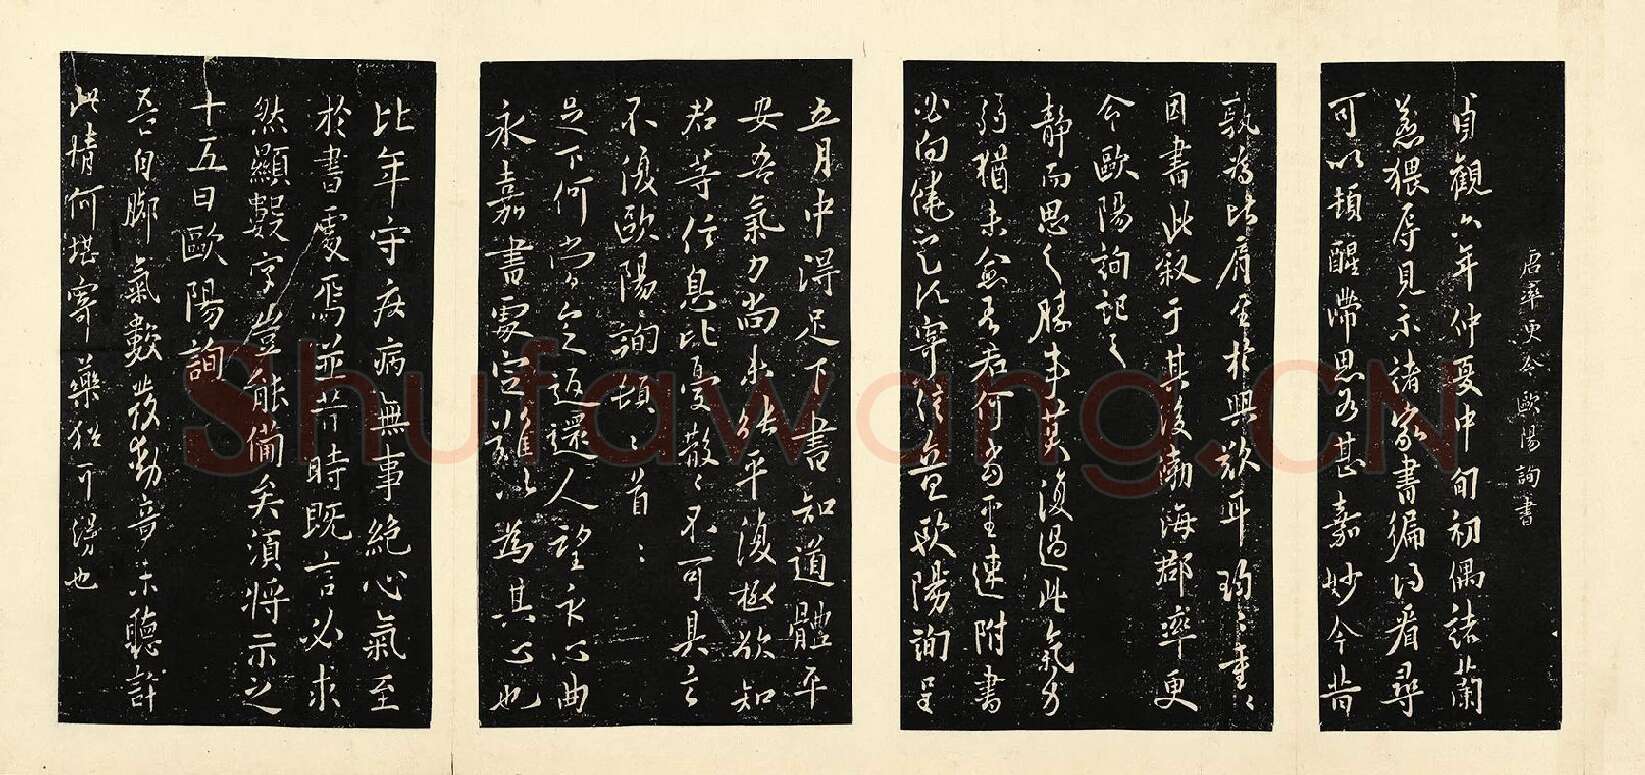 唐率更令歐陽詢書
貞觀六年仲夏中旬初偶諸蘭
若猥辱見示諸家書徧得看尋
可以頓醒滯思為甚嘉妙今昔
孰為比肩至於興歎耳詢重
因書此叙于其後渤海郡率更
令歐陽詢記之
靜而思之勝事莫復過此氣力
弱猶未愈吾君何當至速附書
必向饒定以寄信宜歐陽詢呈
五月中得足下書知道體平
安吾氣力尚未能平復極欲知
君等信息比憂散々不可具言
不復歐陽詢頓々首々
足下何當今返還人望永心曲
永嘉書處定難以為其心也
比年守疾病無事絕心氣至
於書處焉並昔時既言必求
然顯數字豈能備矣須將示之
十五日歐陽詢
吾自腳氣數發動竟未聽許
此情何堪寄藥猶可得也
Shufawang.CN